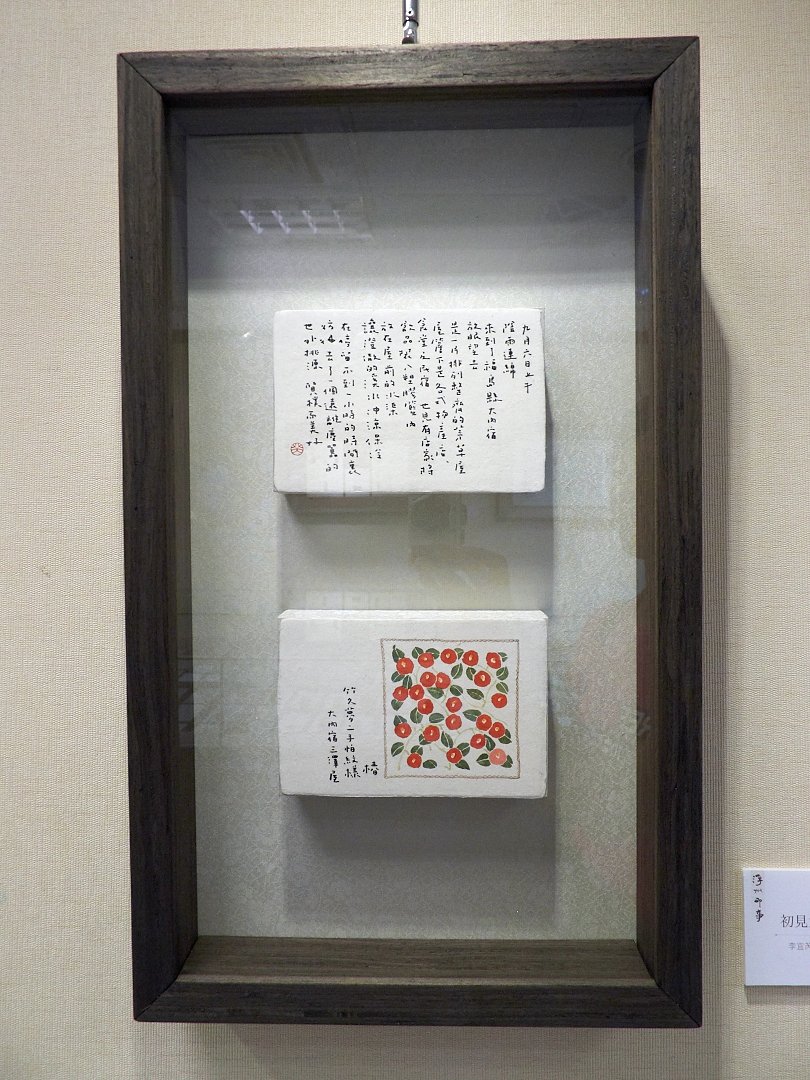 九月六日上午
陰雨連綿
來到了福島縣大內宿
放眼望去
是一片排列整齊的茅草屋
屋簷下是各式物產店、
食堂及民宿 也見有店家將
飲品裝入塑膠籃內
放在屋前的水渠
讓澄澈的雪水沖涼保冷
在停留不到一小時的時間裏
彷彿去了一個遠離塵囂的
世外桃源 質樸而美好
椿
竹久夢二手帕紋樣
大內宿三澤屋
浮州印事
初見
李宜